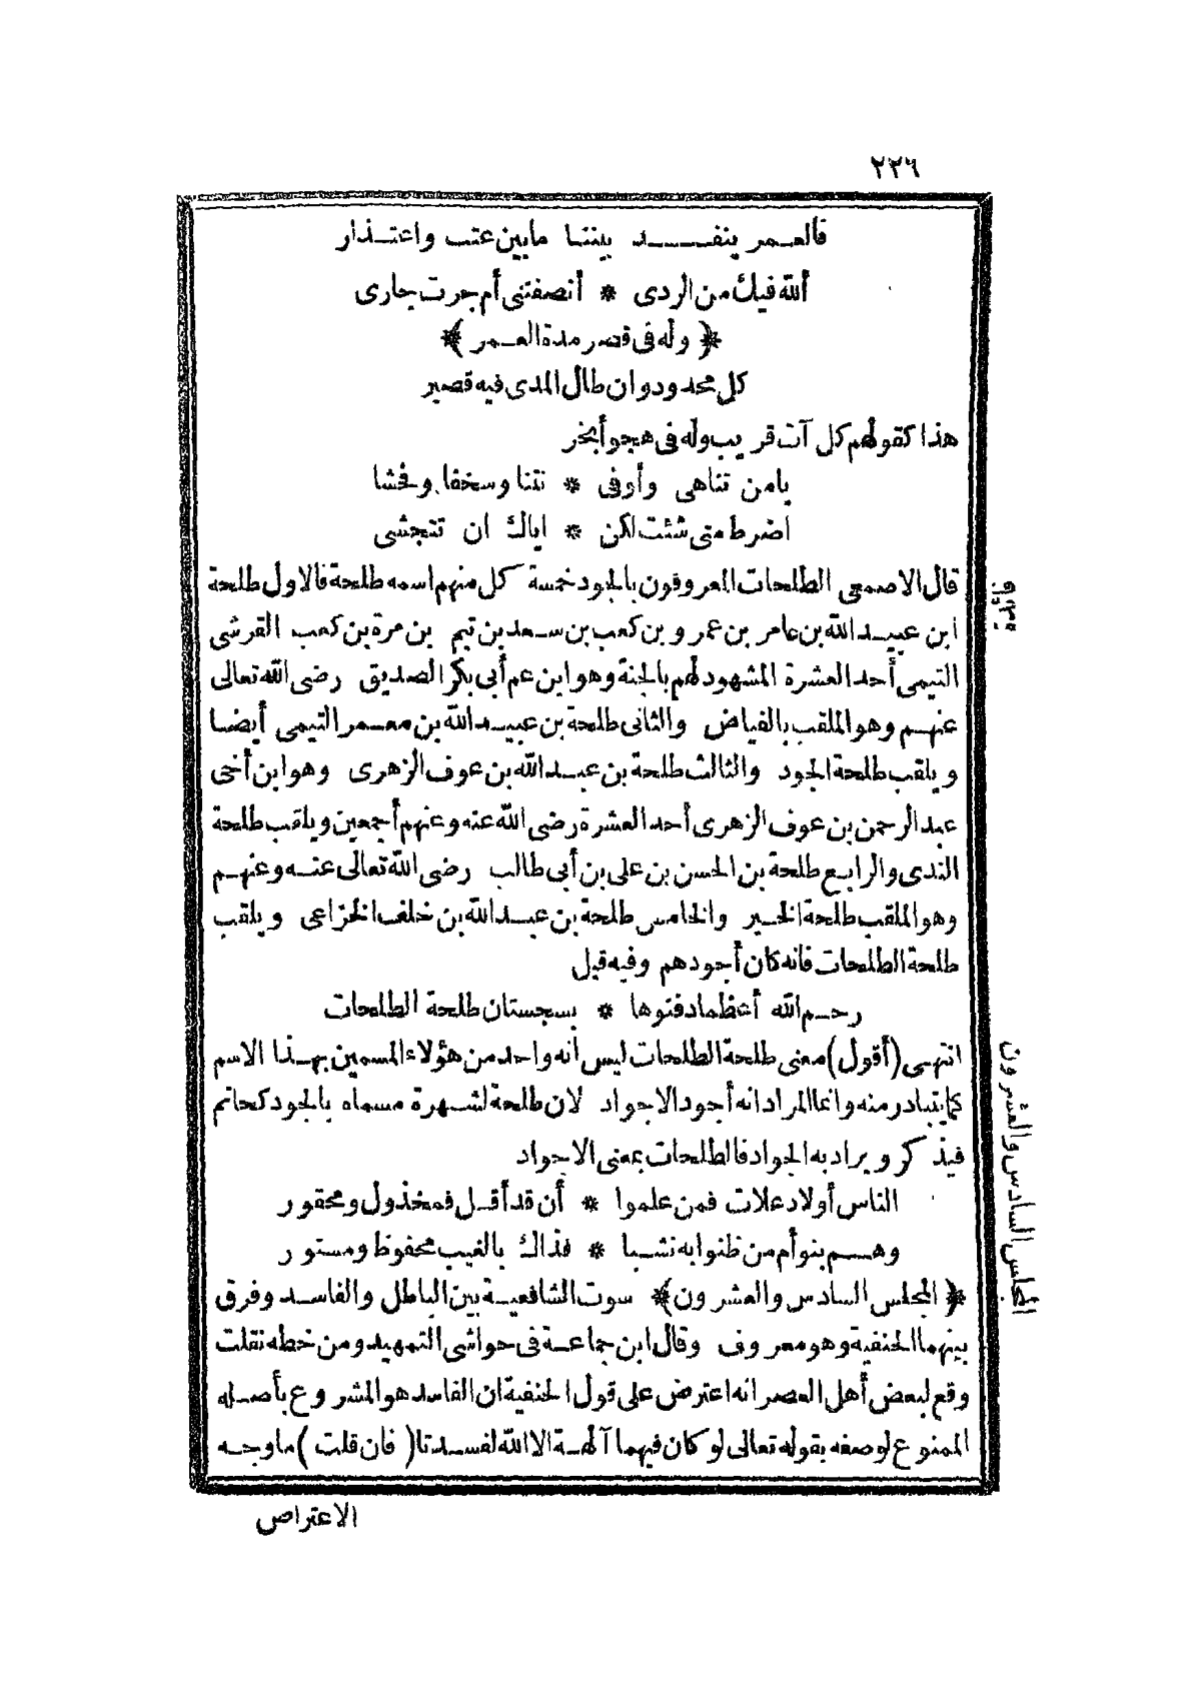 ٢٢٦
فالعمر ينفد بيننا مابين عتب واعتذار
ألله فيك من الردى * أنصفتنى أم جرت جارى
﴿ وله فى قصر مدة العمر ﴾
كل محدود وان طال المدى فيه قصير
هذا كقولهم كل آت قريب وله فى هجو أبخر
يامن تناهى وأوفى * نتنا وسخفا وفحشا
اضرط متى شئت لكن * اياك ان تتجشى
قال الاصمعى الطلحات المعروفون بالجود خمسة كل منهم اسمه طلحة فالاول طلحة
ابن عبيد الله بن عامر بن عمرو بن كعب بن سعد بن تيم بن مرة بن كعب القرشى
التيمى أحد العشرة المشهود لهم بالجنة وهو ابن عم أبى بكر الصديق رضى الله تعالى
عنهم وهو الملقب بالفياض والثانى طلحة بن عبيد الله بن معمر التيمى أيضا
ويلقب طلحة الجود والثالث طلحة بن عبد الله بن عوف الزهرى وهو ابن أخى
عبد الرحمن بن عوف الزهرى أحد العشرة رضى الله عنه وعنهم أجمعين ويلقب طلحة
الندى والرابع طلحة بن الحسن بن على بن أبى طالب رضى الله تعالى عنه وعنهم
وهو الملقب طلحة الخير والخامس طلحة بن عبد الله بن خلف الخزاعى ويلقب
طلحة الطلحات فانه كان أجودهم وفيه قيل
رحم الله أعظما دفنوها * بسجستان طلحة الطلحات
انتهى (أقول) معنى طلحة الطلحات ليس انه واحد من هؤلاء المسمين بهذا الاسم
كما يتبادر منه وانما المراد انه أجود الاجواد لان طلحة لشهرة مسماه بالجود كحاتم
فيذكر ويراد به الجواد فالطلحات بمعنى الاجواد
الناس أولاد علات فمن علموا * أن قد أقل فمخذول ومحقور
وهم بنو أم من ظنوا به نشبا * فذاك بالغيب محفوظ ومستور
﴿ المجلس السادس والعشرون ﴾ سوت الشافعية بين الباطل والفاسد وفرق
بينهما الحنفية وهو معروف وقال ابن جماعة فى حواشى التمهيد ومن خطه نقلت
وقع لبعض أهل العصر انه اعترض على قول الحنفية ان الفاسد هو المشروع بأصله
الممنوع لوصفه بقوله تعالى لو كان فيهما آلهة الا الله لفسدتا (فان قلت) ما وجه
الاعتراض
المجلس السادس والعشرون